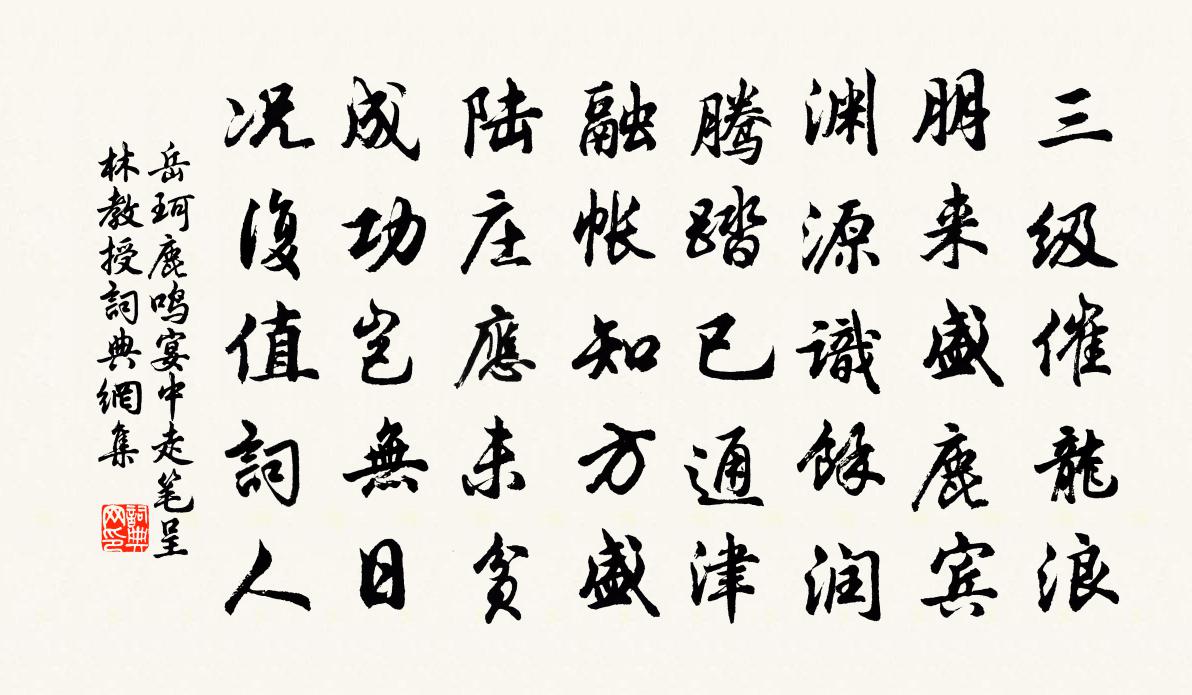 三级催龍浪
朋来盛鹿宾
渊源識餘润
腾踏已通津
融帐知方盛
陆庄應未贫
成功岂無日
况復值詞人
岳珂鹿鸣宴中走笔呈
林教授詞典網集
詞典
网印